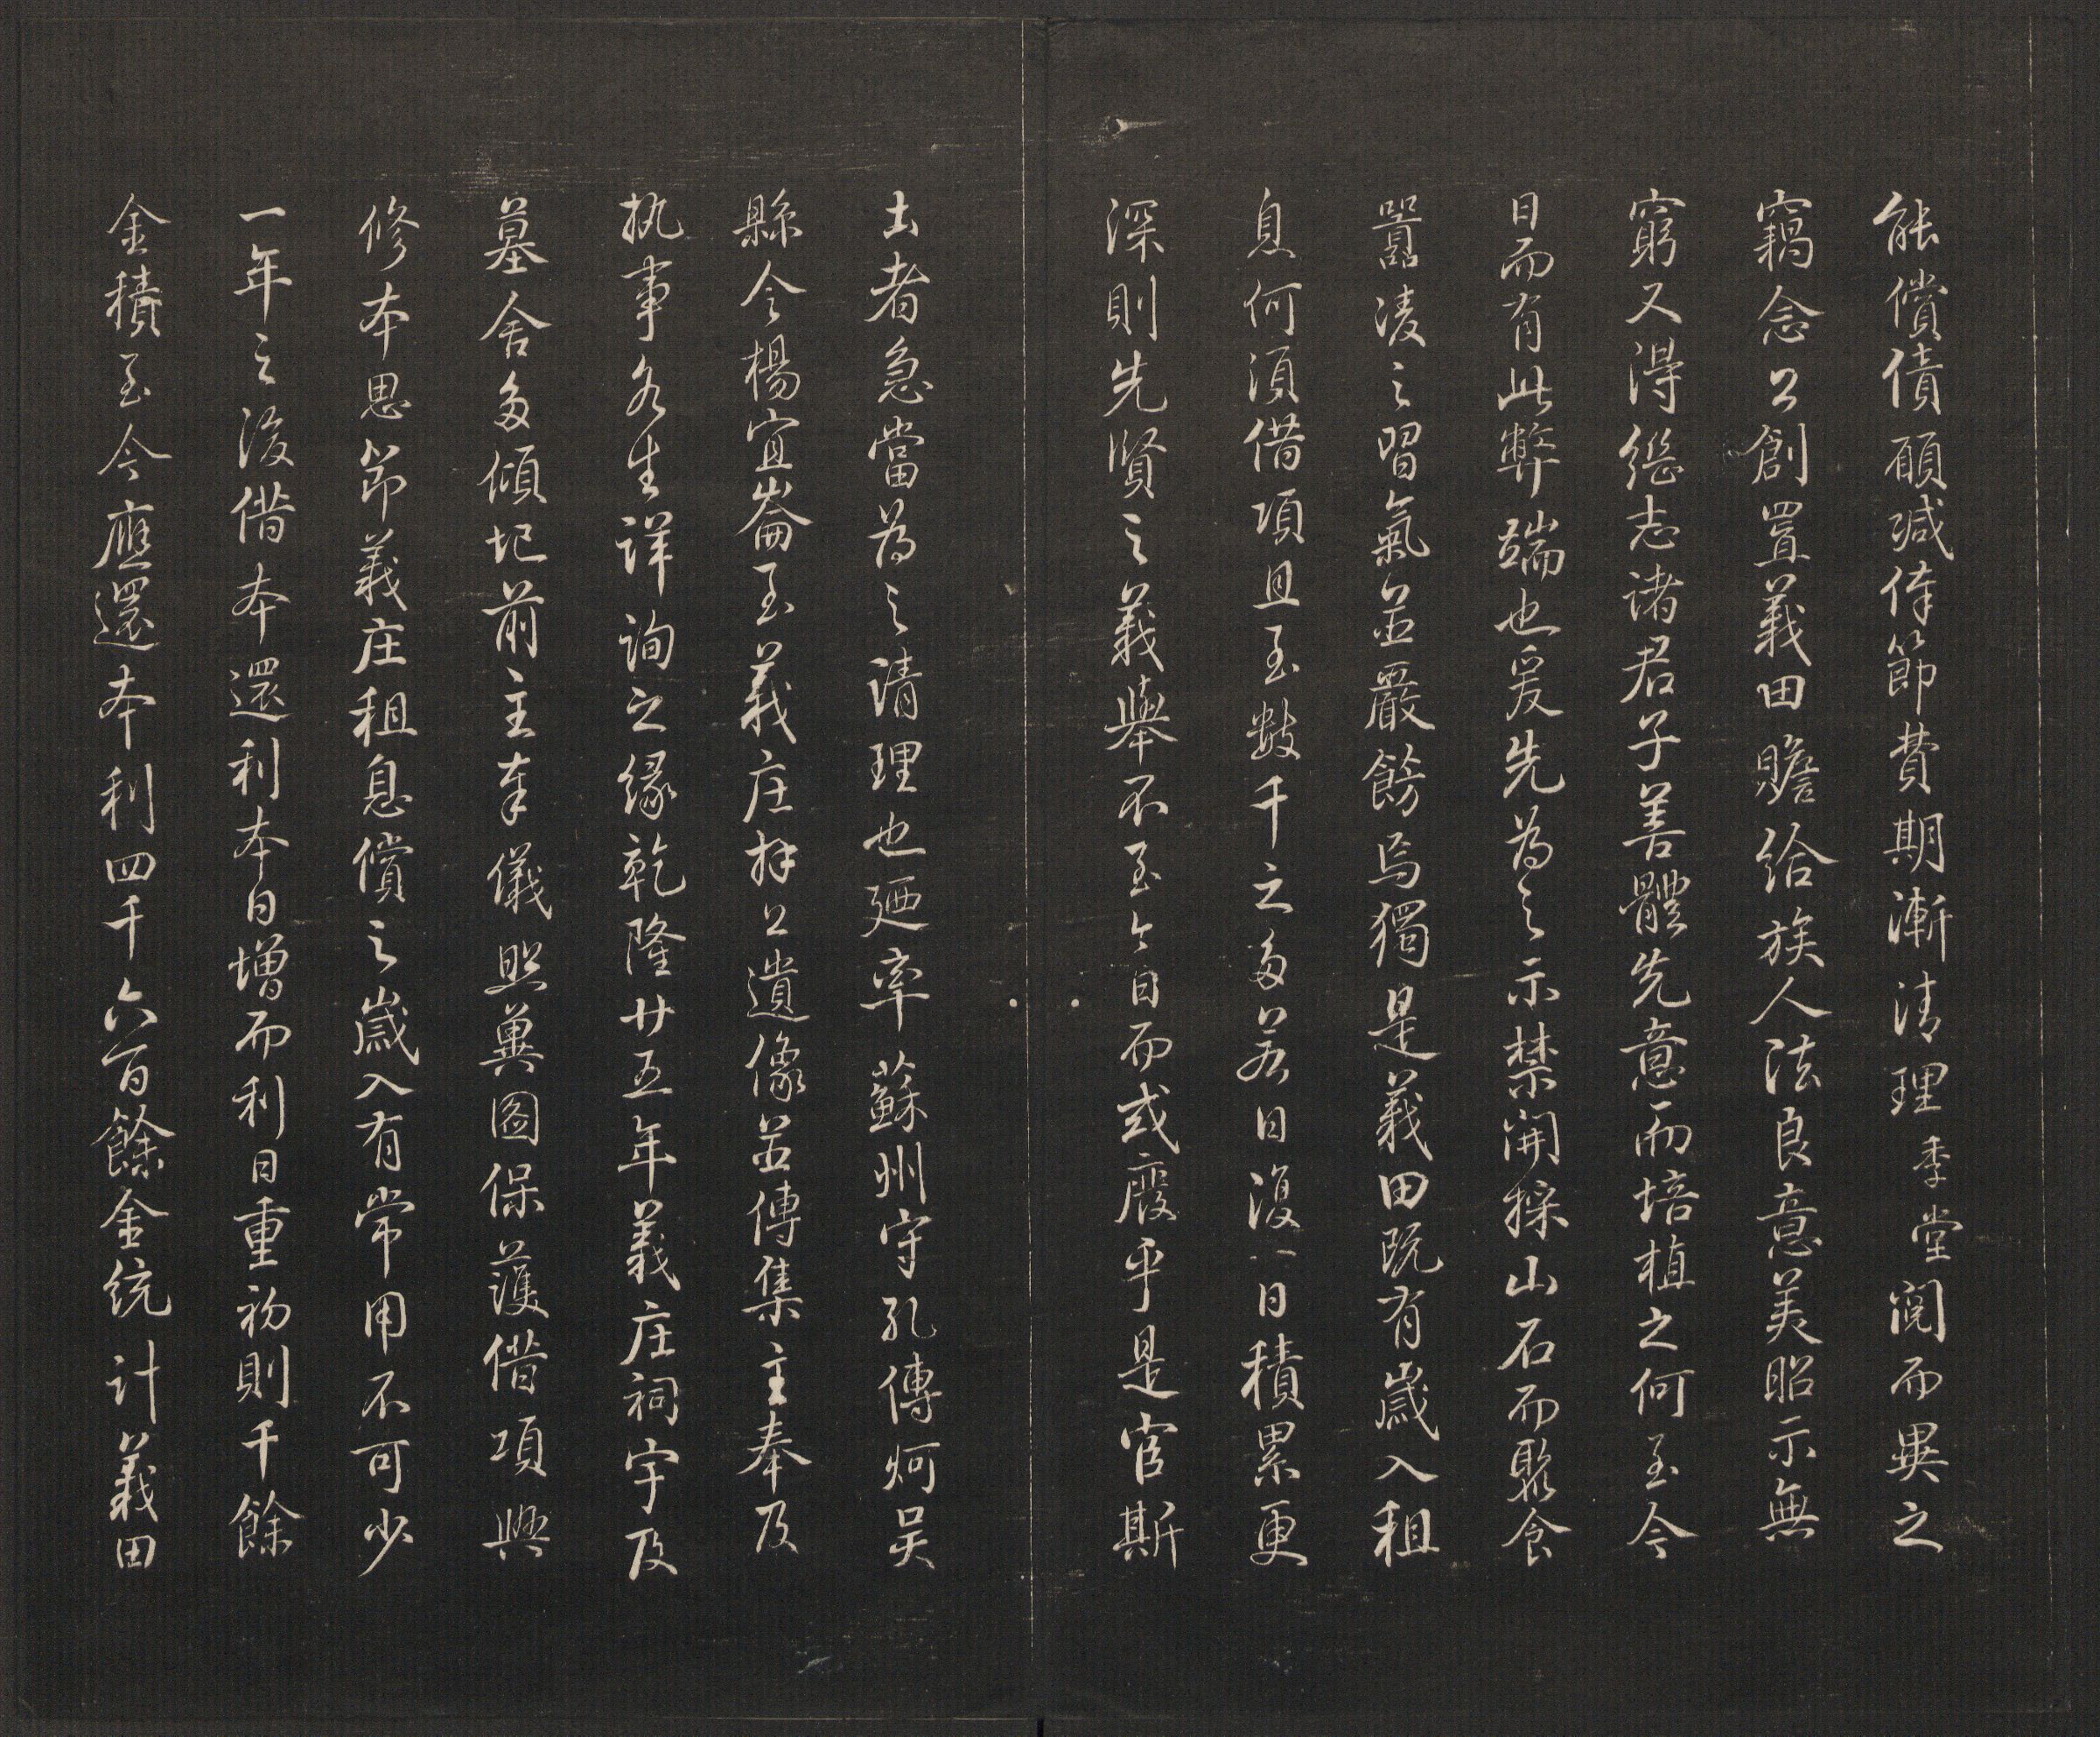 能償債願減俸節費期漸清理季堂閱而異之
竊念公創置義田贍給族人法良意美昭示無
窮又得繼志諸君子善體先意而培植之何至今
日而有此弊端也爰先為之示禁開採山石而聚食
囂凌之習氣並嚴飭焉獨是義田既有歲入租
息何須借項且至數千之多若日復一日積累更
深則先賢之義舉不至今日而或廢乎是官斯
土者急當為之清理也廼率蘇州守孔傳炣吳
縣令楊宜崙至義庄拜公遺像並傳集主奉及
執事各生詳詢之緣乾隆廿五年義庄祠宇及
墓舍多傾圮前主奉儀照冀圖保護借項興
修本思節義庄租息償之歲入有常用不可少
一年之後借本還利本日增而利日重初則千餘
金積至今應還本利四千六百餘金統計義田